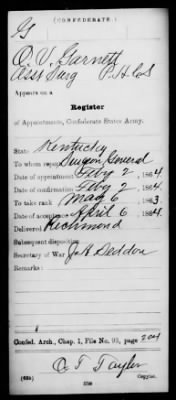 (CONFEDERATE.)
G
O. V. Garnett
Asst Surg P.A.C.S
Appears on a
Register
of Appointments, Confederate States Army.
State Kentucky
To whom report Surgeon General
Date of appointment Feby 2, 1864.
Date of confirmation Feby 2, 1864.
To take rank May 6, 1863.
Date of acceptance April 6, 1864.
Delivered Richmond
Subsequent disposition
Secretary of War J. A. Seddon
Remarks:
Confed. Arch., Chap. 1, File No. 93, page 204
O. T. Taylor
Copyist.